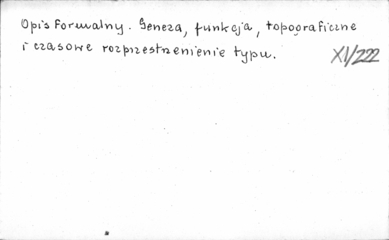 Opis Formalny. Geneza, funkcja, topograficzne
i czasowe rozprzestrzenienie typu.
XI/222